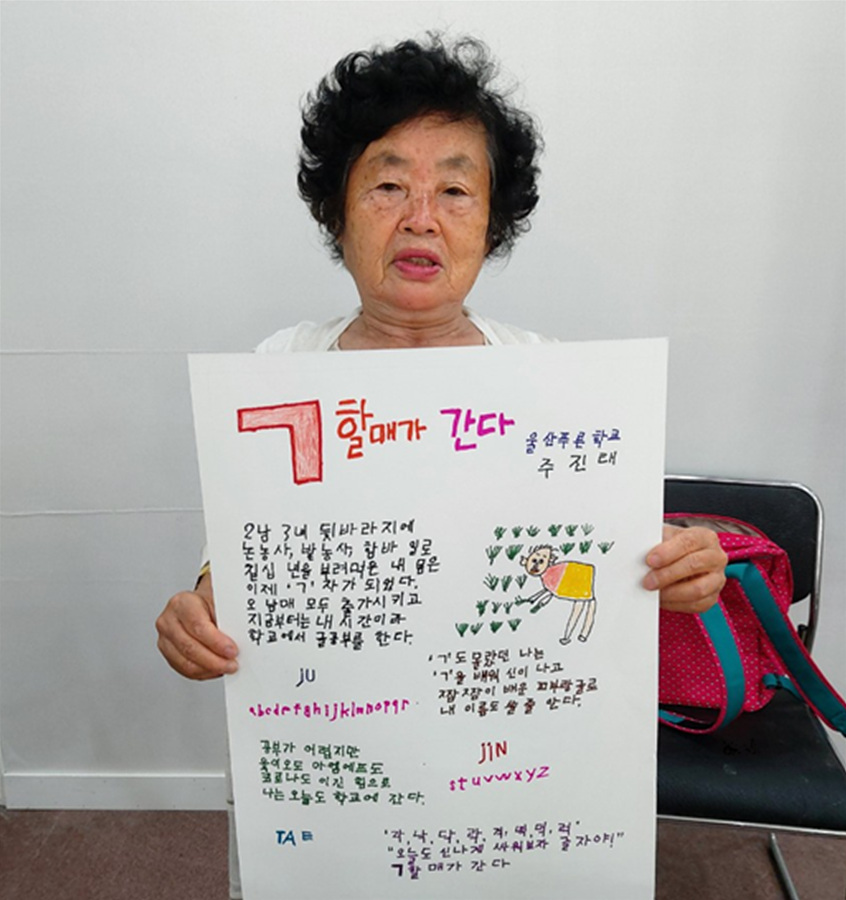 ㄱ할매가 간다
울산푸른학교
주진태
2남 3녀 뒷바라지에
논농사, 밭농사, 함바 일로
칠십 년을 부려먹은 내 몸은
이제 'ㄱ' 자가 되었다.
오 남매 모두 출가시키고
지금부터는 내 시간이라
학교에서 글공부를 한다.
'ㄱ'도 몰랐던 나는
'ㄱ'을 배워 신이 나고
짬짬이 배운 꼬부랑글로
내 이름도 쓸 줄 안다.
JU
abcdefghijklmnopqr
공부가 어렵지만
육이오도 아엠에프도
코로나도 이긴 힘으로
나는 오늘도 학교에 간다.
JIN
stuvwxyz
TAE
"오늘도 신나게 싸워보자 글자야!"
ㄱ할매가 간다